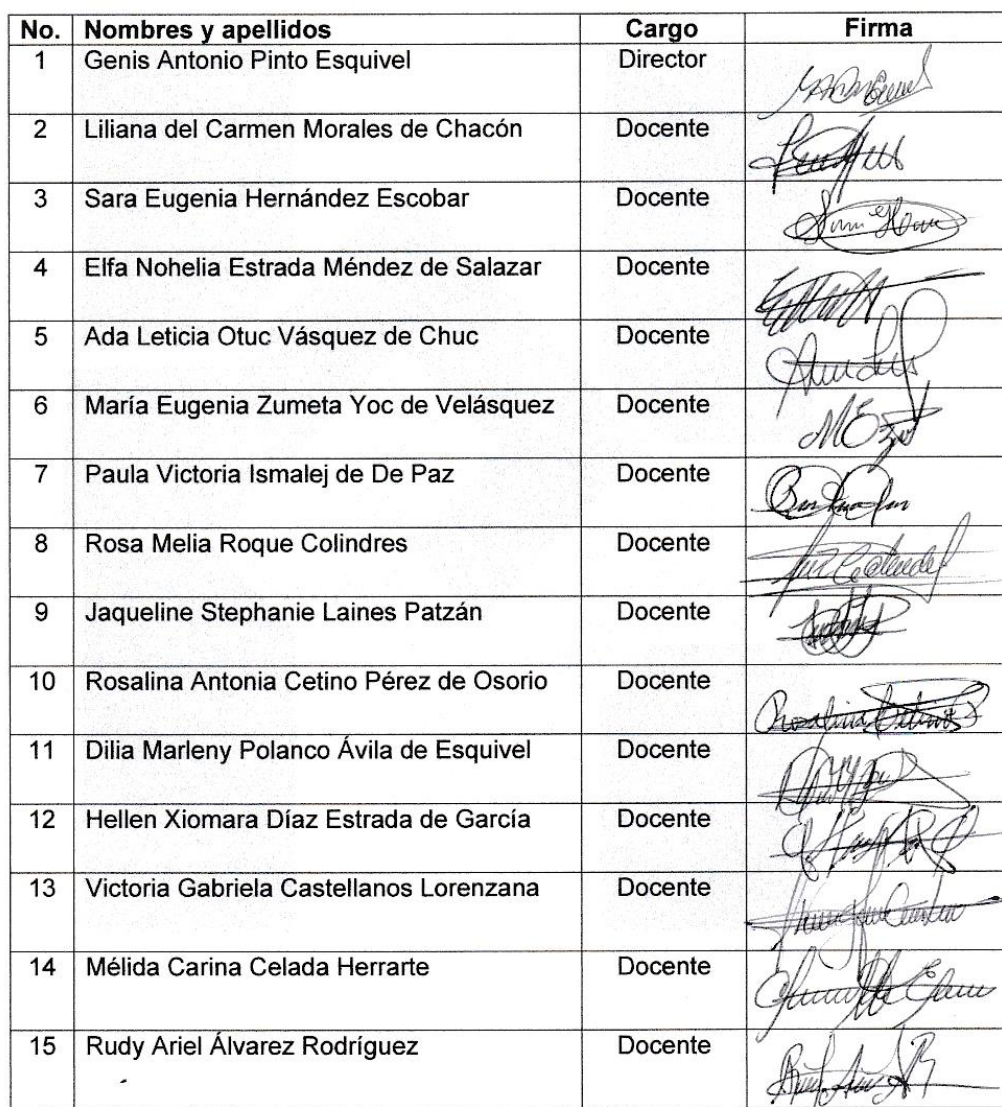 No. Nombres y apellidos Cargo Firma
1 Genis Antonio Pinto Esquivel Director
2 Liliana del Carmen Morales de Chacón Docente
3 Sara Eugenia Hernández Escobar Docente
4 Elfa Nohelia Estrada Méndez de Salazar Docente
5 Ada Leticia Otuc Vásquez de Chuc Docente
6 María Eugenia Zumeta Yoc de Velásquez Docente
7 Paula Victoria Ismalej de De Paz Docente
8 Rosa Melia Roque Colindres Docente
9 Jaqueline Stephanie Laines Patzán Docente
10 Rosalina Antonia Cetino Pérez de Osorio Docente
11 Dilia Marleny Polanco Ávila de Esquivel Docente
12 Hellen Xiomara Díaz Estrada de García Docente
13 Victoria Gabriela Castellanos Lorenzana Docente
14 Mélida Carina Celada Herrarte Docente
15 Rudy Ariel Álvarez Rodríguez Docente